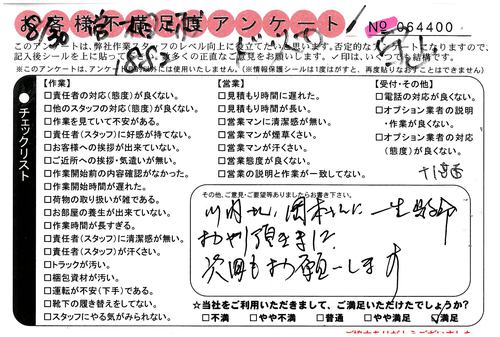 お客様不満足度アンケート
No 064400
8/30
このアンケートは、弊社作業スタッフのレベル向上に役立てたいと思います。否定的なアンケートになりますので、
記入後シールを上に貼っ 多くの正直なご意見をお願いします。✓印は、いくつでも結構です。
(※このアンケートは、アンケート 以外には使用いたしません。)(※情報保護シールは1度はがすと、再度貼りなおすことはできません)
●チェックリスト
【作業】
□責任者の対応(態度)が良くない。
□他のスタッフの対応(態度)が良くない。
□作業を見ていて不安がある。
□責任者(スタッフ)に好感が持てない。
□お客様への挨拶が出来ていない。
□ご近所への挨拶・気遣いが無い。
□作業開始前の内容確認がなかった。
□作業開始時間が遅れた。
□荷物の取り扱いが雑である。
□お部屋の養生が出来ていない。
□作業時間が長すぎる。
□責任者(スタッフ)に清潔感が無い。
□責任者(スタッフ)が汗くさい。
□トラックが汚い。
□梱包資材が汚い。
□運転が不安(下手)である。
□靴下の履き替えをしてない。
□スタッフにやる気がみられない。
【営業】
□見積もり時間に遅れた。
□見積もり時間が長い。
□営業マンに清潔感が無い。
□営業マンが煙草くさい。
□営業マンが汗くさい。
□営業態度が良くない。
□営業の説明と作業が一致してない。
【受付・その他】
□電話の対応が良くない。
□オプション業者の説明・作業が良くない。
□オプション業者の対応(態度)が良くない。
その他、ご意見・ご要望等ありましたらお書き下さい。
川内さん、岡本さんに一生懸命
お願いします
☆当社をご利用いただきまして、ご満足いただけたでしょうか?
□不満 □やや不満 □普通 □やや満足 ☑満足
ご協力ありがとうございました